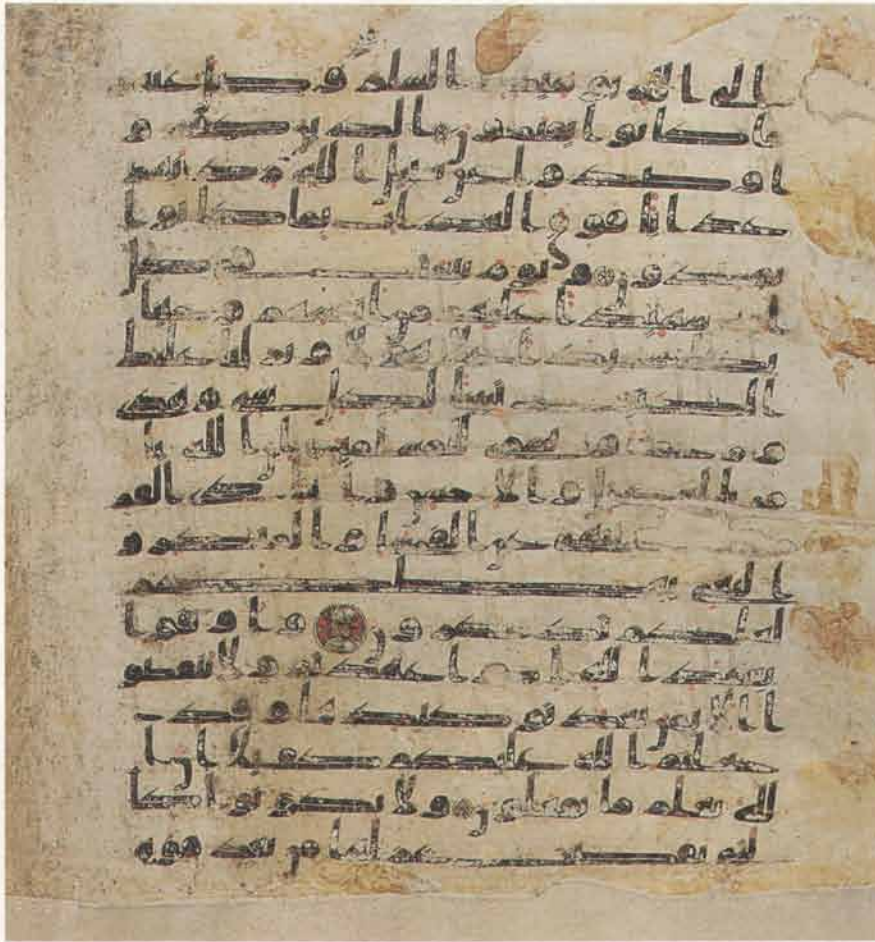 الى الله يومئذ السلم وضل عنهم
ما كانوا يفترون الذين كفرو
ا وصدوا عن سبيل الله زدنهم
عذابا فوق العذاب بما كانوا
يفسدون ويوم نبعث فى كل
امة شهيدا عليهم من انفسهم وجئنا
بك شهيدا على هولا ونزلنا عليك
الكتب تبينا لكل شى وهدى
ورحمة وبشرى للمسلمين ان الله يا
مر بالعدل والاحسن وايتاى ذى القر
بى وينهى عن الفحشا والمنكر و
البغى يعظكم
لعلكم تذكرون واوفوا
بعهد الله اذا عهدتم ولا تنقضو
ا الايمن بعد توكيدها وقد
جعلتم الله عليكم كفيلا ان ا
لله يعلم ما تفعلون ولا تكونوا كا
لتى نقضت غزلها من بعد قوة